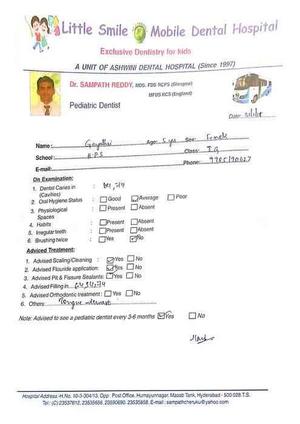 Little Smile Mobile Dental Hospital
Exclusive Dentistry for kids
A UNIT OF ASHWINI DENTAL HOSPITAL (Since 1997)
Dr. SAMPATH REDDY, MDS. FDS RCPS (Glasgow)
MFDS RCS (England)
Pediatric Dentist
Date:
Name: Gayathri Age: 5 yrs Sex: Female
School: H.P.S Class:
E-mail: Phone:
On Examination:
1. Dental Caries in (Cavities)
2. Oral Hygiene Status : Good Average Poor
3. Physiological Spaces : Present Absent
4. Habits : Present Absent
5. Irregular teeth : Present Absent
6. Brushing twice : Yes No
Advised Treatment:
1. Advised Scaling/Cleaning : Yes No
2. Advised Flouride application: Yes No
3. Advised Pit & Fissure Sealants: Yes No
4. Advised Filling in
5. Advised Orthodontic treatment : Yes No
6. Others
Note: Advised to see a pediatric dentist every 3-6 months Yes No
Hospital Address -H.No. 10-3-304/13, Opp. Post Office, Humayunnagar, Masab Tank, Hyderabad - 500 028.T.S.
Tel.: (C) 23537812, 23535658, 23530690, 23535858, E-mail : sampathcheruku@yahoo.com